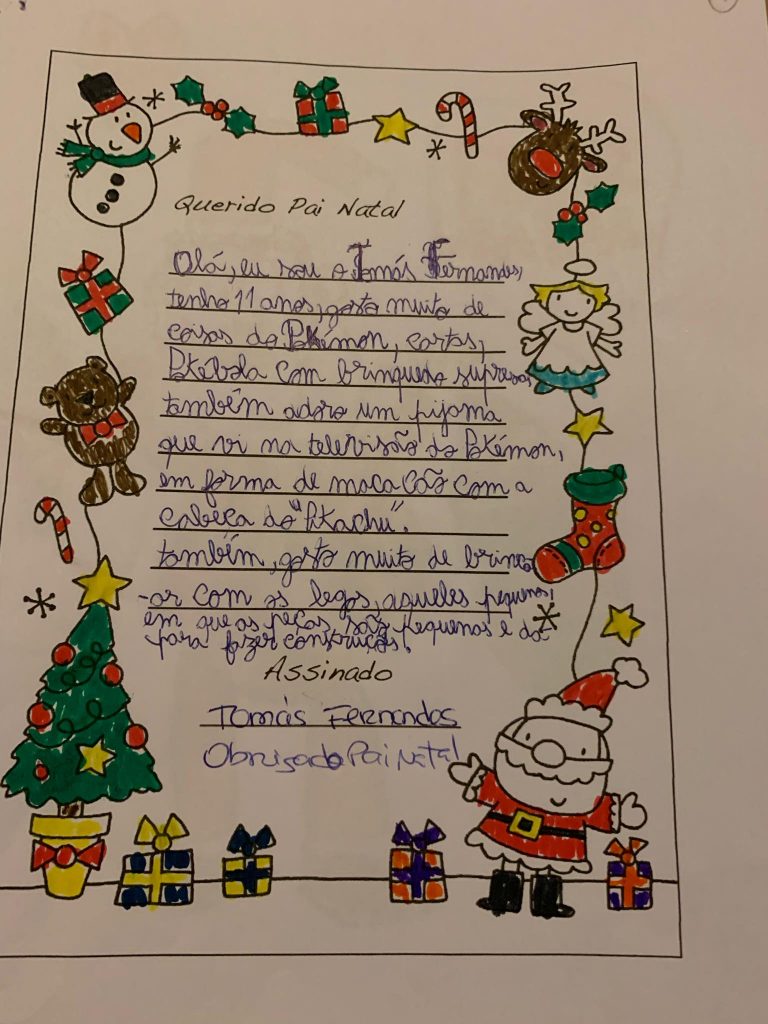 Querido Pai Natal
Olá, eu sou o Tomás Fernandes,
tenho 11 anos, gosto muito de
coisas do Pokémon, cartas,
Pokébola com brinquedo supresa,
também adoro um pijama
que vi na televisão do Pokémon,
em forma de macacão com a
cabeça do "Pikachu".
também, gosto muito de brinca
-ar com os legos, aqueles pequenos,
em que as peças são pequenas e dá
para fazer construções.
Assinado
Tomás Fernandes
Obrigado Pai Natal